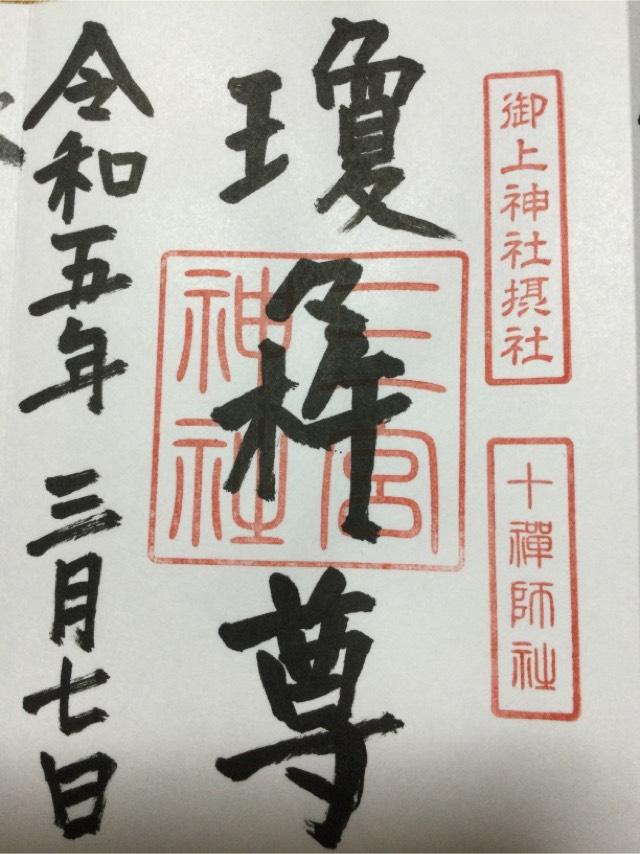 御上神社摂社
十禪師社
瓊々杵尊
三宮神社
令和五年 三月七日